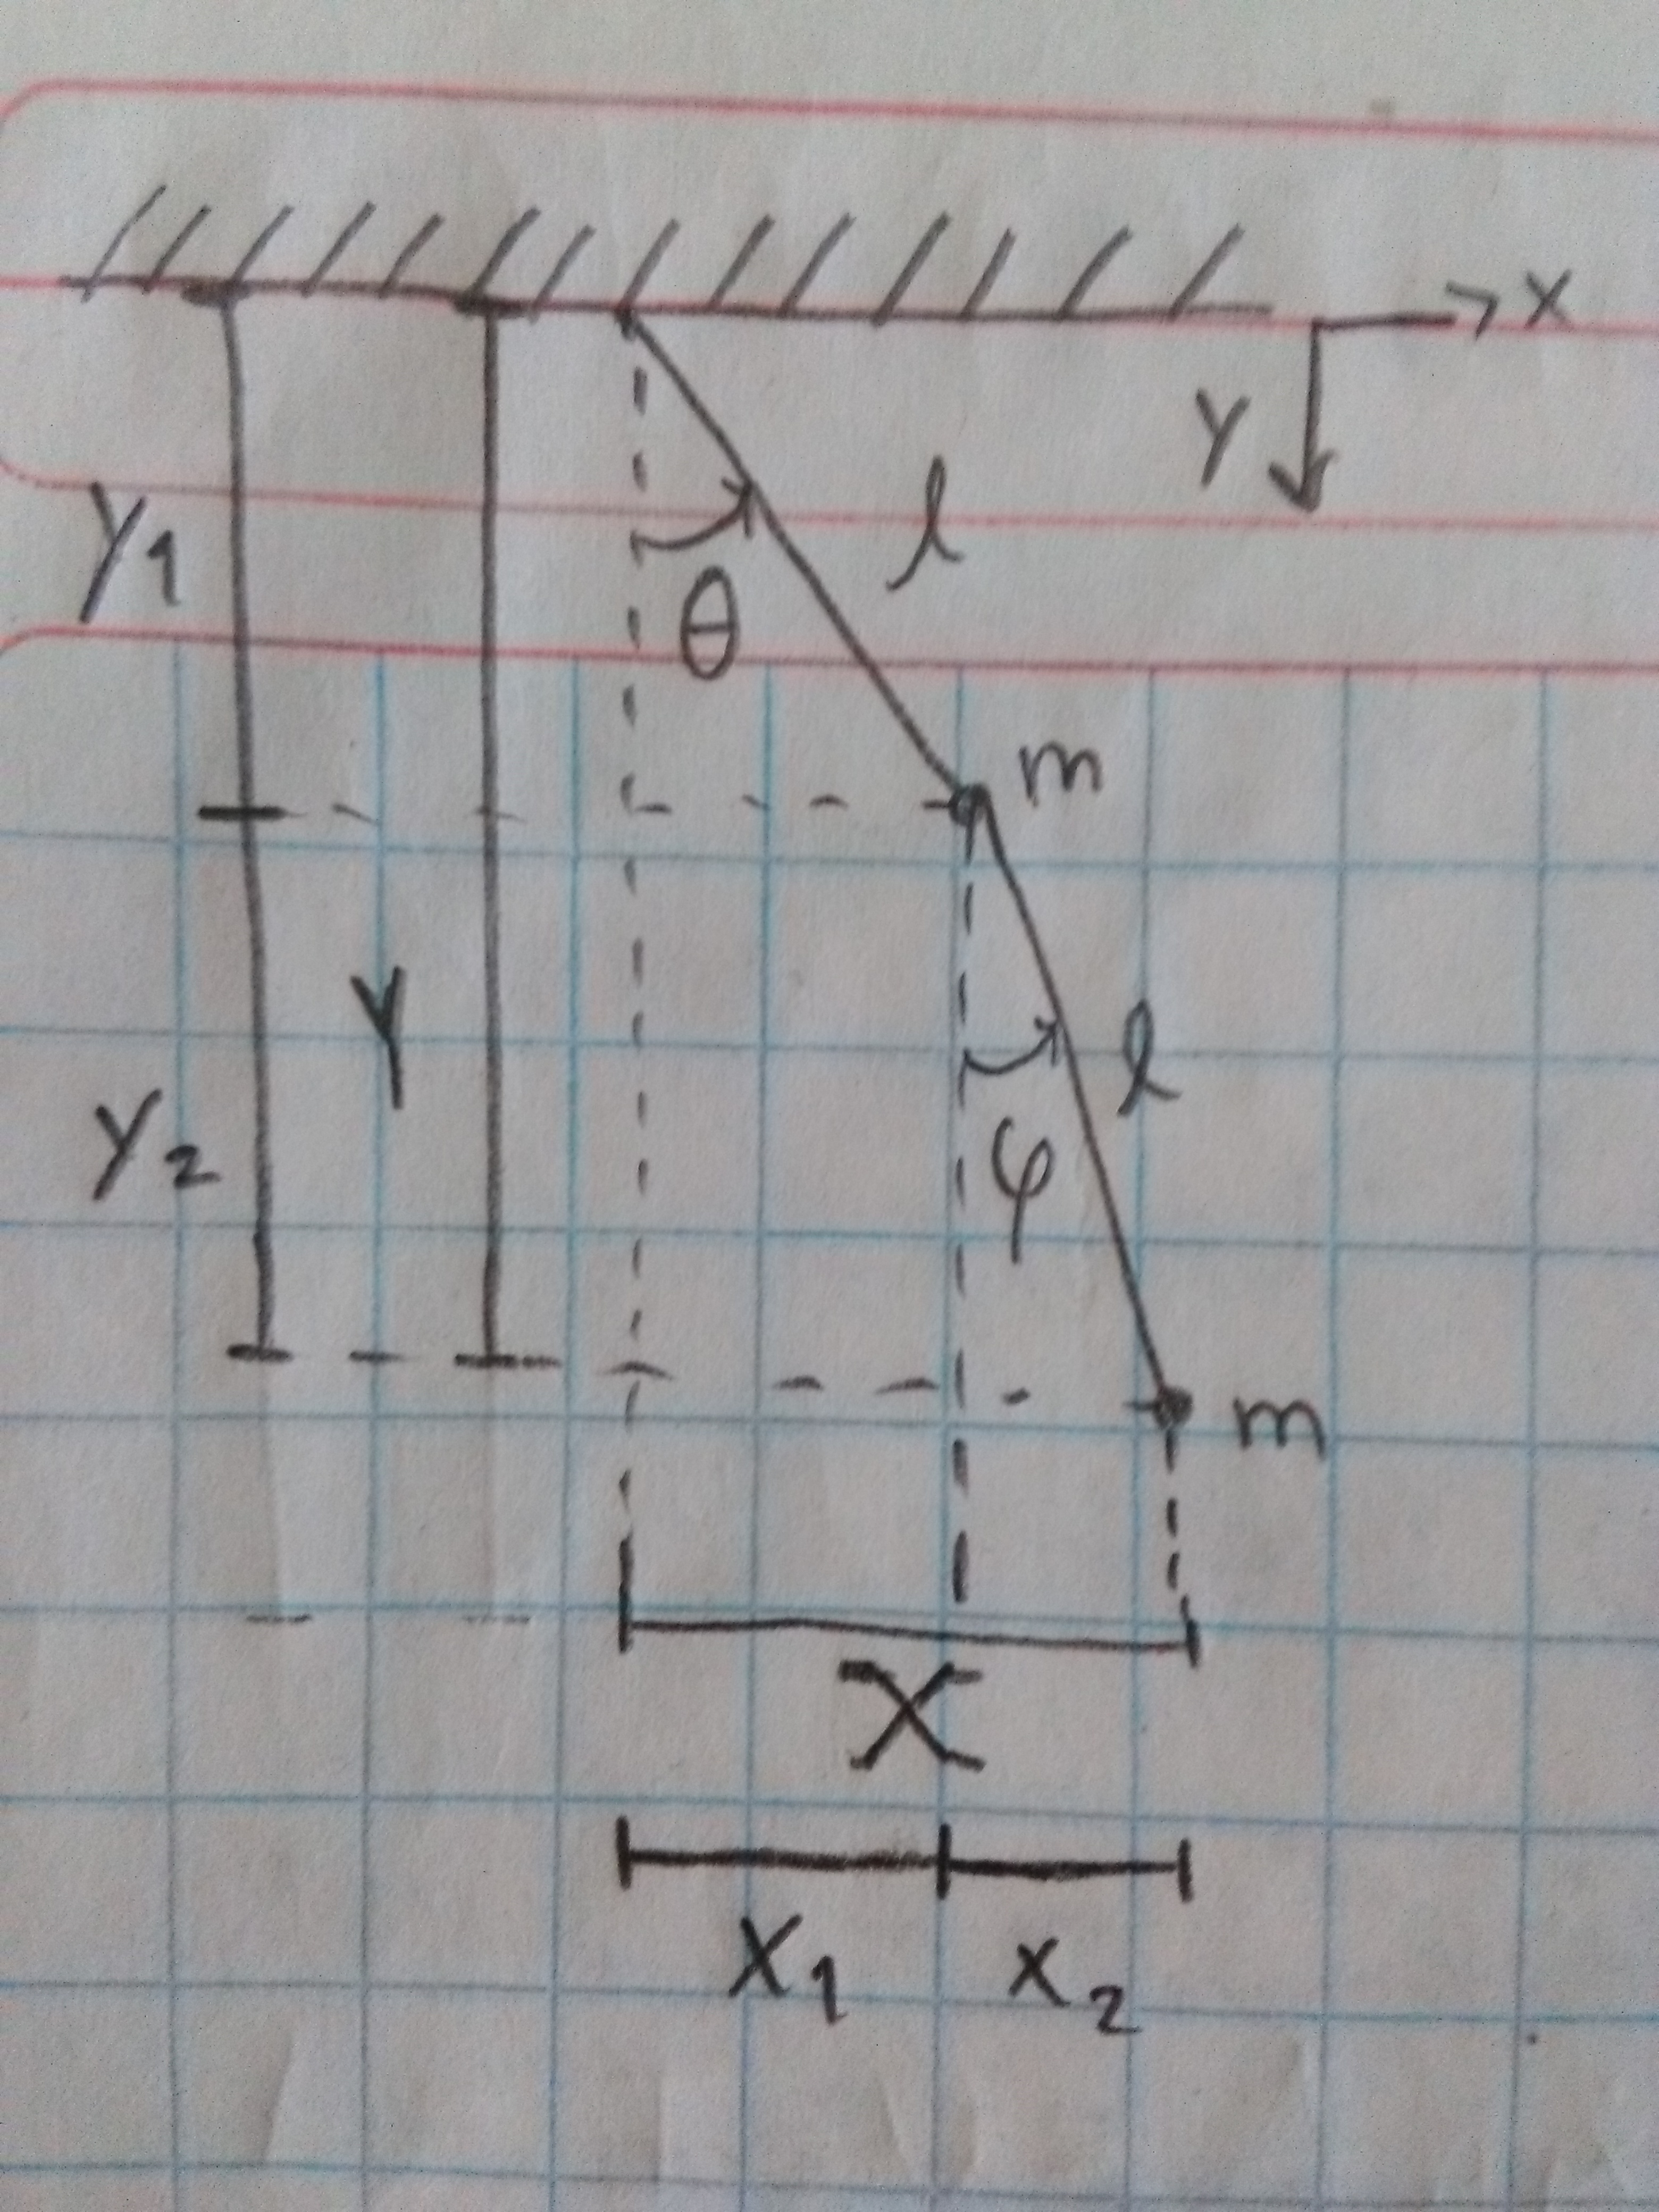 x
y
y1
l
θ
m
y
l
y2
φ
m
X
x1 x2